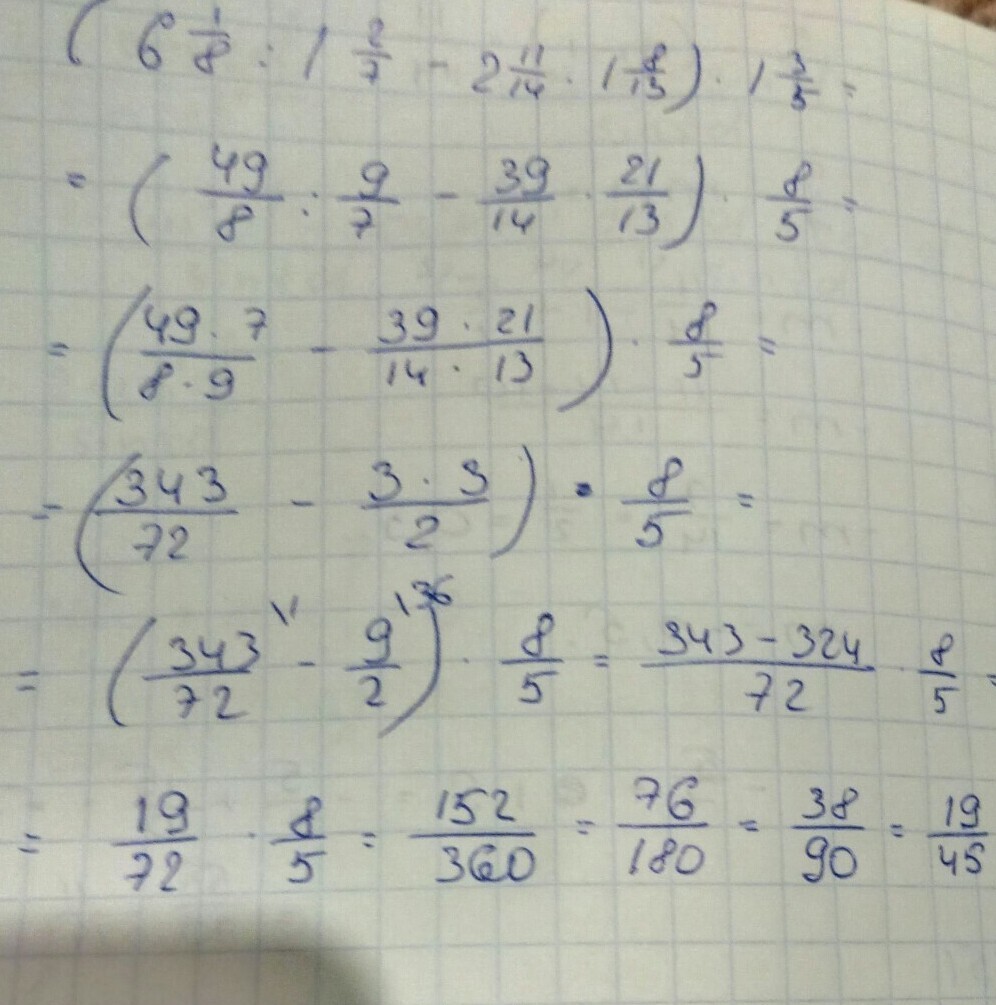 ( 6 1/8 : 1 2/7 - 2 11/14 · 1 8/13 ) · 1 3/5 =
= ( 49/8 : 9/7 - 39/14 · 21/13 ) · 8/5 =
= ( 49·7/8·9 - 39·21/14·13 ) · 8/5 =
= ( 343/72 - 3·3/2 ) · 8/5 =
= ( 343/72 \1 - 9/2 \36 ) · 8/5 = 343-324/72 · 8/5 =
= 19/72 · 8/5 = 152/360 = 76/180 = 38/90 = 19/45